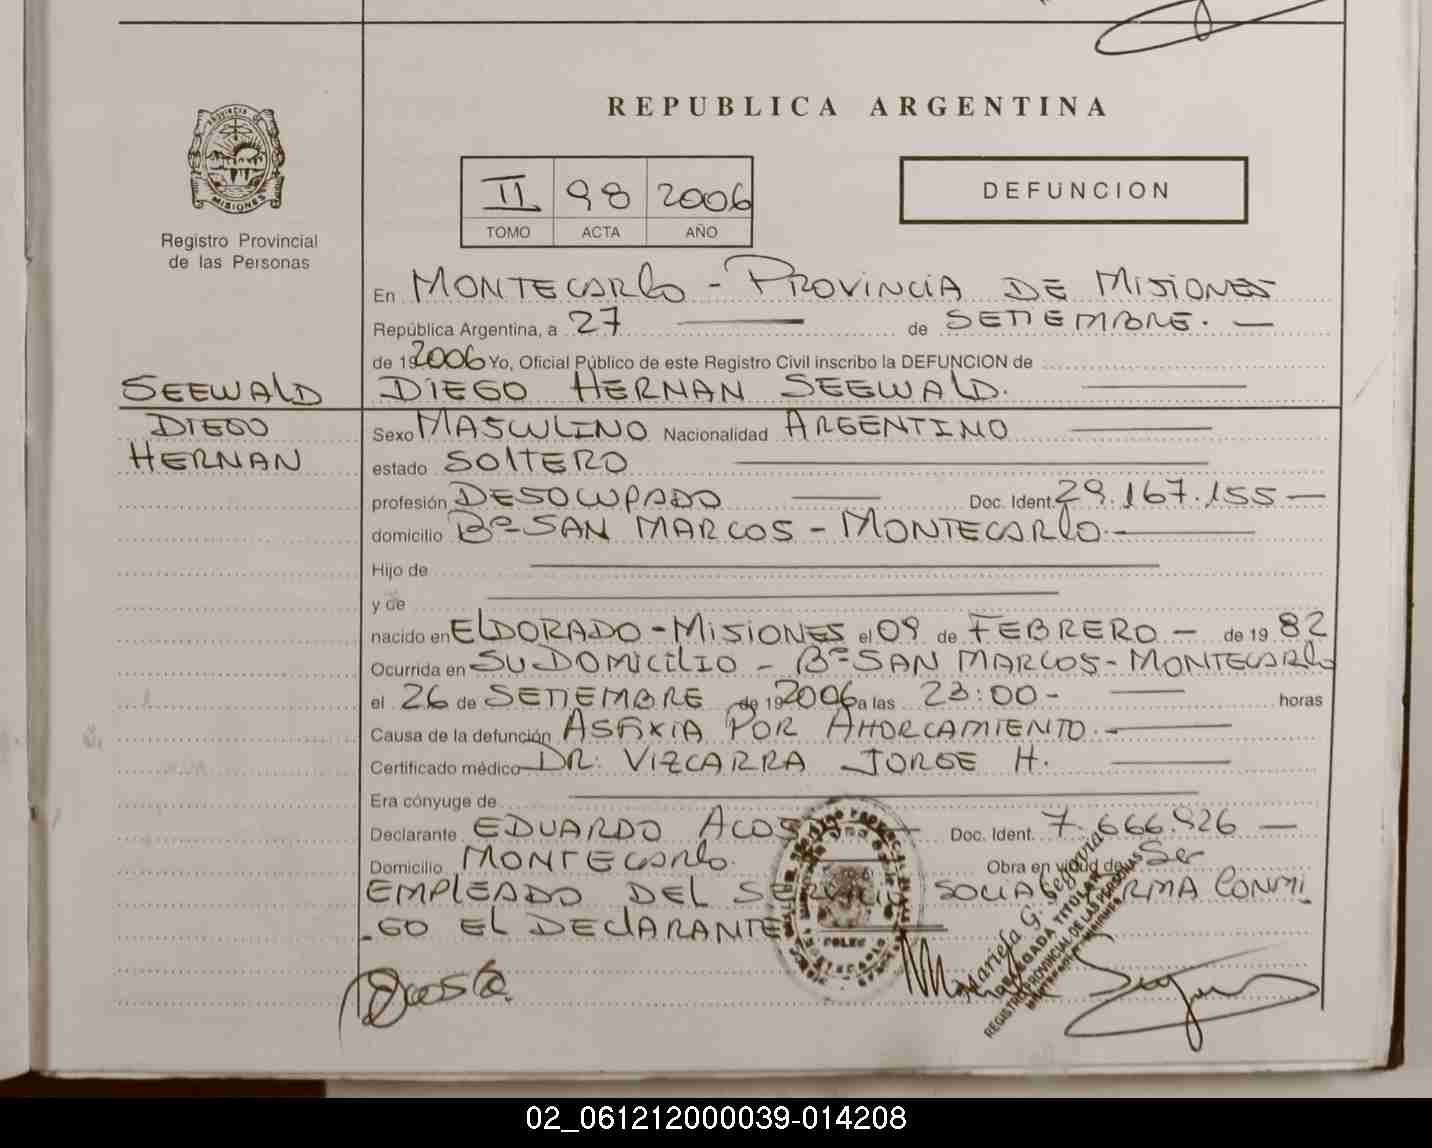 REPUBLICA ARGENTINA
PROVINCIA DE
MISIONES
Registro Provincial
de las Personas
II 98 2006
TOMO ACTA AÑO
DEFUNCION
En MONTECARLO - PROVINCIA DE MISIONES
República Argentina, a 27 de SETIEMBRE. —
de 192006 Yo, Oficial Público de este Registro Civil inscribo la DEFUNCION de
SEEWALD DIEGO HERNAN SEEWALD.
DIEGO Sexo MASCULINO Nacionalidad ARGENTINO
HERNAN estado SOLTERO
profesión DESOCUPADO Doc. Ident. 29.167.155 —
domicilio Bº SAN MARCOS - MONTECARLO.
Hijo de
y de
nacido en ELDORADO - MISIONES el 09 de FEBRERO - de 19 82
Ocurrida en SU DOMICILIO - Bº SAN MARCOS - MONTECARLO
el 26 de SETIEMBRE de 192006 a las 23:00 - horas
Causa de la defunción ASFIXIA POR AHORCAMIENTO. -
Certificado médico DR. VIZCARRA JORGE H.
Era cónyuge de
Declarante EDUARDO ACOSTA Doc. Ident. 7.666.926 —
Domicilio MONTECARLO. Obra en virtud de Ser
EMPLEADO DEL SERVICIO SOCIAL FIRMA CONMI
-GO EL DECLARANTE
Acosta
Mariela G. Segovia
DELEGADA TITULAR
REGISTRO PROVINCIAL DE LAS PERSONAS
MONTECARLO - MISIONES
02_061212000039-014208